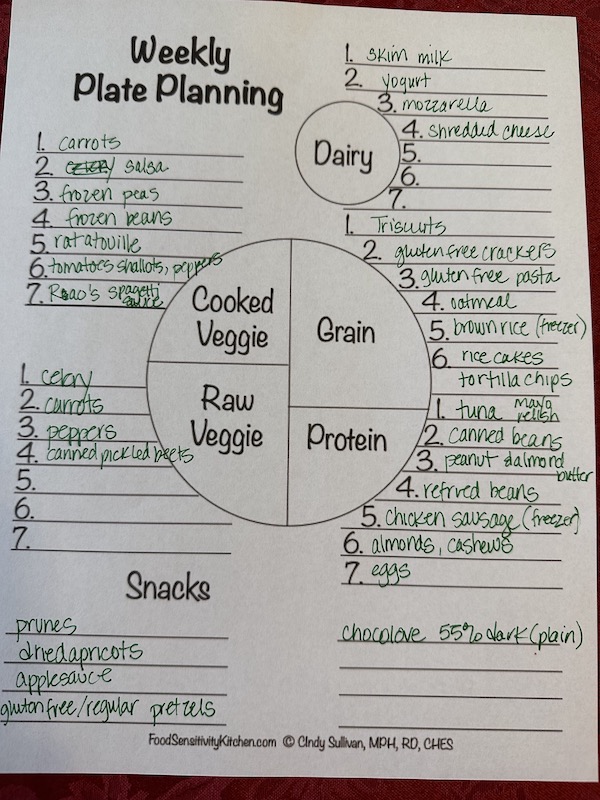 Weekly
Plate Planning
1. carrots
2. celery salsa
3. frozen peas
4. frozen beans
5. ratatouille
6. tomatoes shallots, peppers
7. Rao's spagetti
sauce
1. skim milk
2. yogurt
3. mozzarella
4. shredded cheese
5.
6.
7.
Dairy
1. Triscuits
2. gluten free crackers
3. gluten free pasta
4. oatmeal
5. brown rice (freezer)
6. rice cakes
tortilla chips
Cooked
Veggie
Grain
Raw
Veggie
Protein
1. celery
2. carrots
3. peppers
4. canned pickled beets
5.
6.
7.
1. tuna mayo
relish
2. canned beans
3. peanut & almond
butter
4. refried beans
5. chicken sausage (freezer)
6. almonds, cashews
7. eggs
Snacks
prunes
dried apricots
applesauce
gluten free/regular pretzels
chocolove 55% dark (plain)
FoodSensitivityKitchen.com © CIndy Sullivan, MPH, RD, CHES